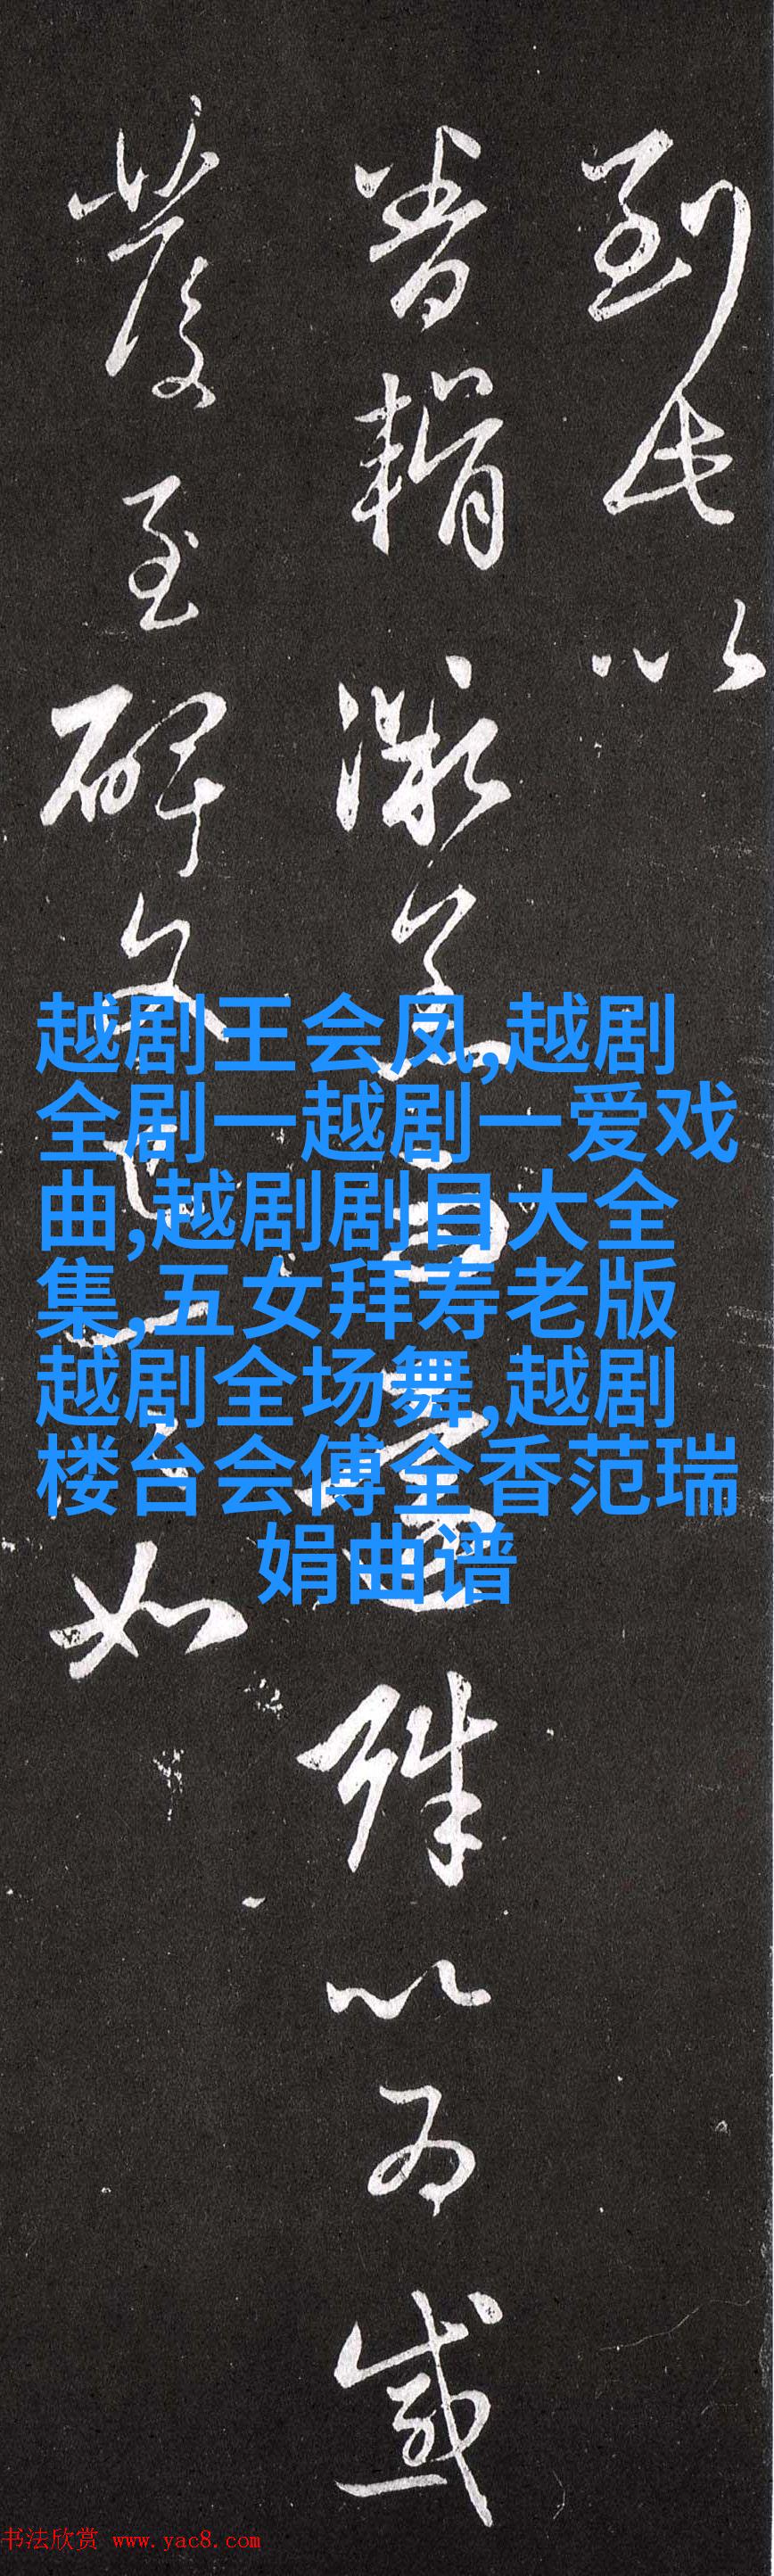 到此以
普辑漱
殊以为感
发至碑文
如
越剧王会凤,越剧
全剧一越剧一爱戏
曲,越剧剧目大全
集,五女拜寿老版
越剧全场舞,越剧
楼台会傅全香范瑞
娟曲谱
书法欣赏 www.yac8.com